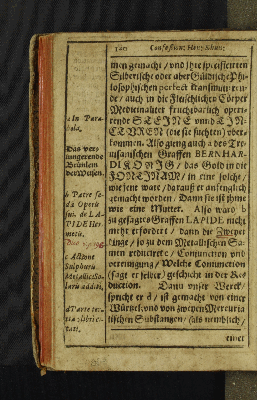 Confession: Henr. Khun:
men gemacht / und ihre specificirten
Silberische oder aber Güldische Phi-
losophischen perfect transmutiren-
de / auch in die Fleischlicher Cörper
Medicinaliter fruchtbarlich operi-
rende STEINE unnd TIN-
CTUREN (die sie suchten) uber-
kommen. Also gieng auch des Tre-
uisanischen Graffen BERNHAR-
DI KÖNIG / das Gold in die
FONTINAM / in eine solche /
wie jene ware / darauß er anfenglich
gemacht worden. Dann sie ist ihme
wie eine Mutter. Also ward b
zu gesagtes Graffen LAPIDE nicht
mehr erfordert / dann die Zweyer
dinge / so zu dem Metallischen Sa-
men reducirt c / Conjunction und
vereinigung / Welche Conjunction
(sage er ferner) geschicht in der Re-
duction. Dann unser Werck /
spricht er d / ist gemacht von einer
Würtzel / und von zweyen Mercuria-
lischen Substantzen / (als nemblich /
einer
a In Para-
bola.
Das ver-
jungerende
Brünlein
der Weisen.
b Parte se-
da Operis
sui de LA-
PIDE Her-
metis.
c Actione
Sulphuris
Metallic So-
laris additi,
d Parte ter-
tia libri ci-
tati.